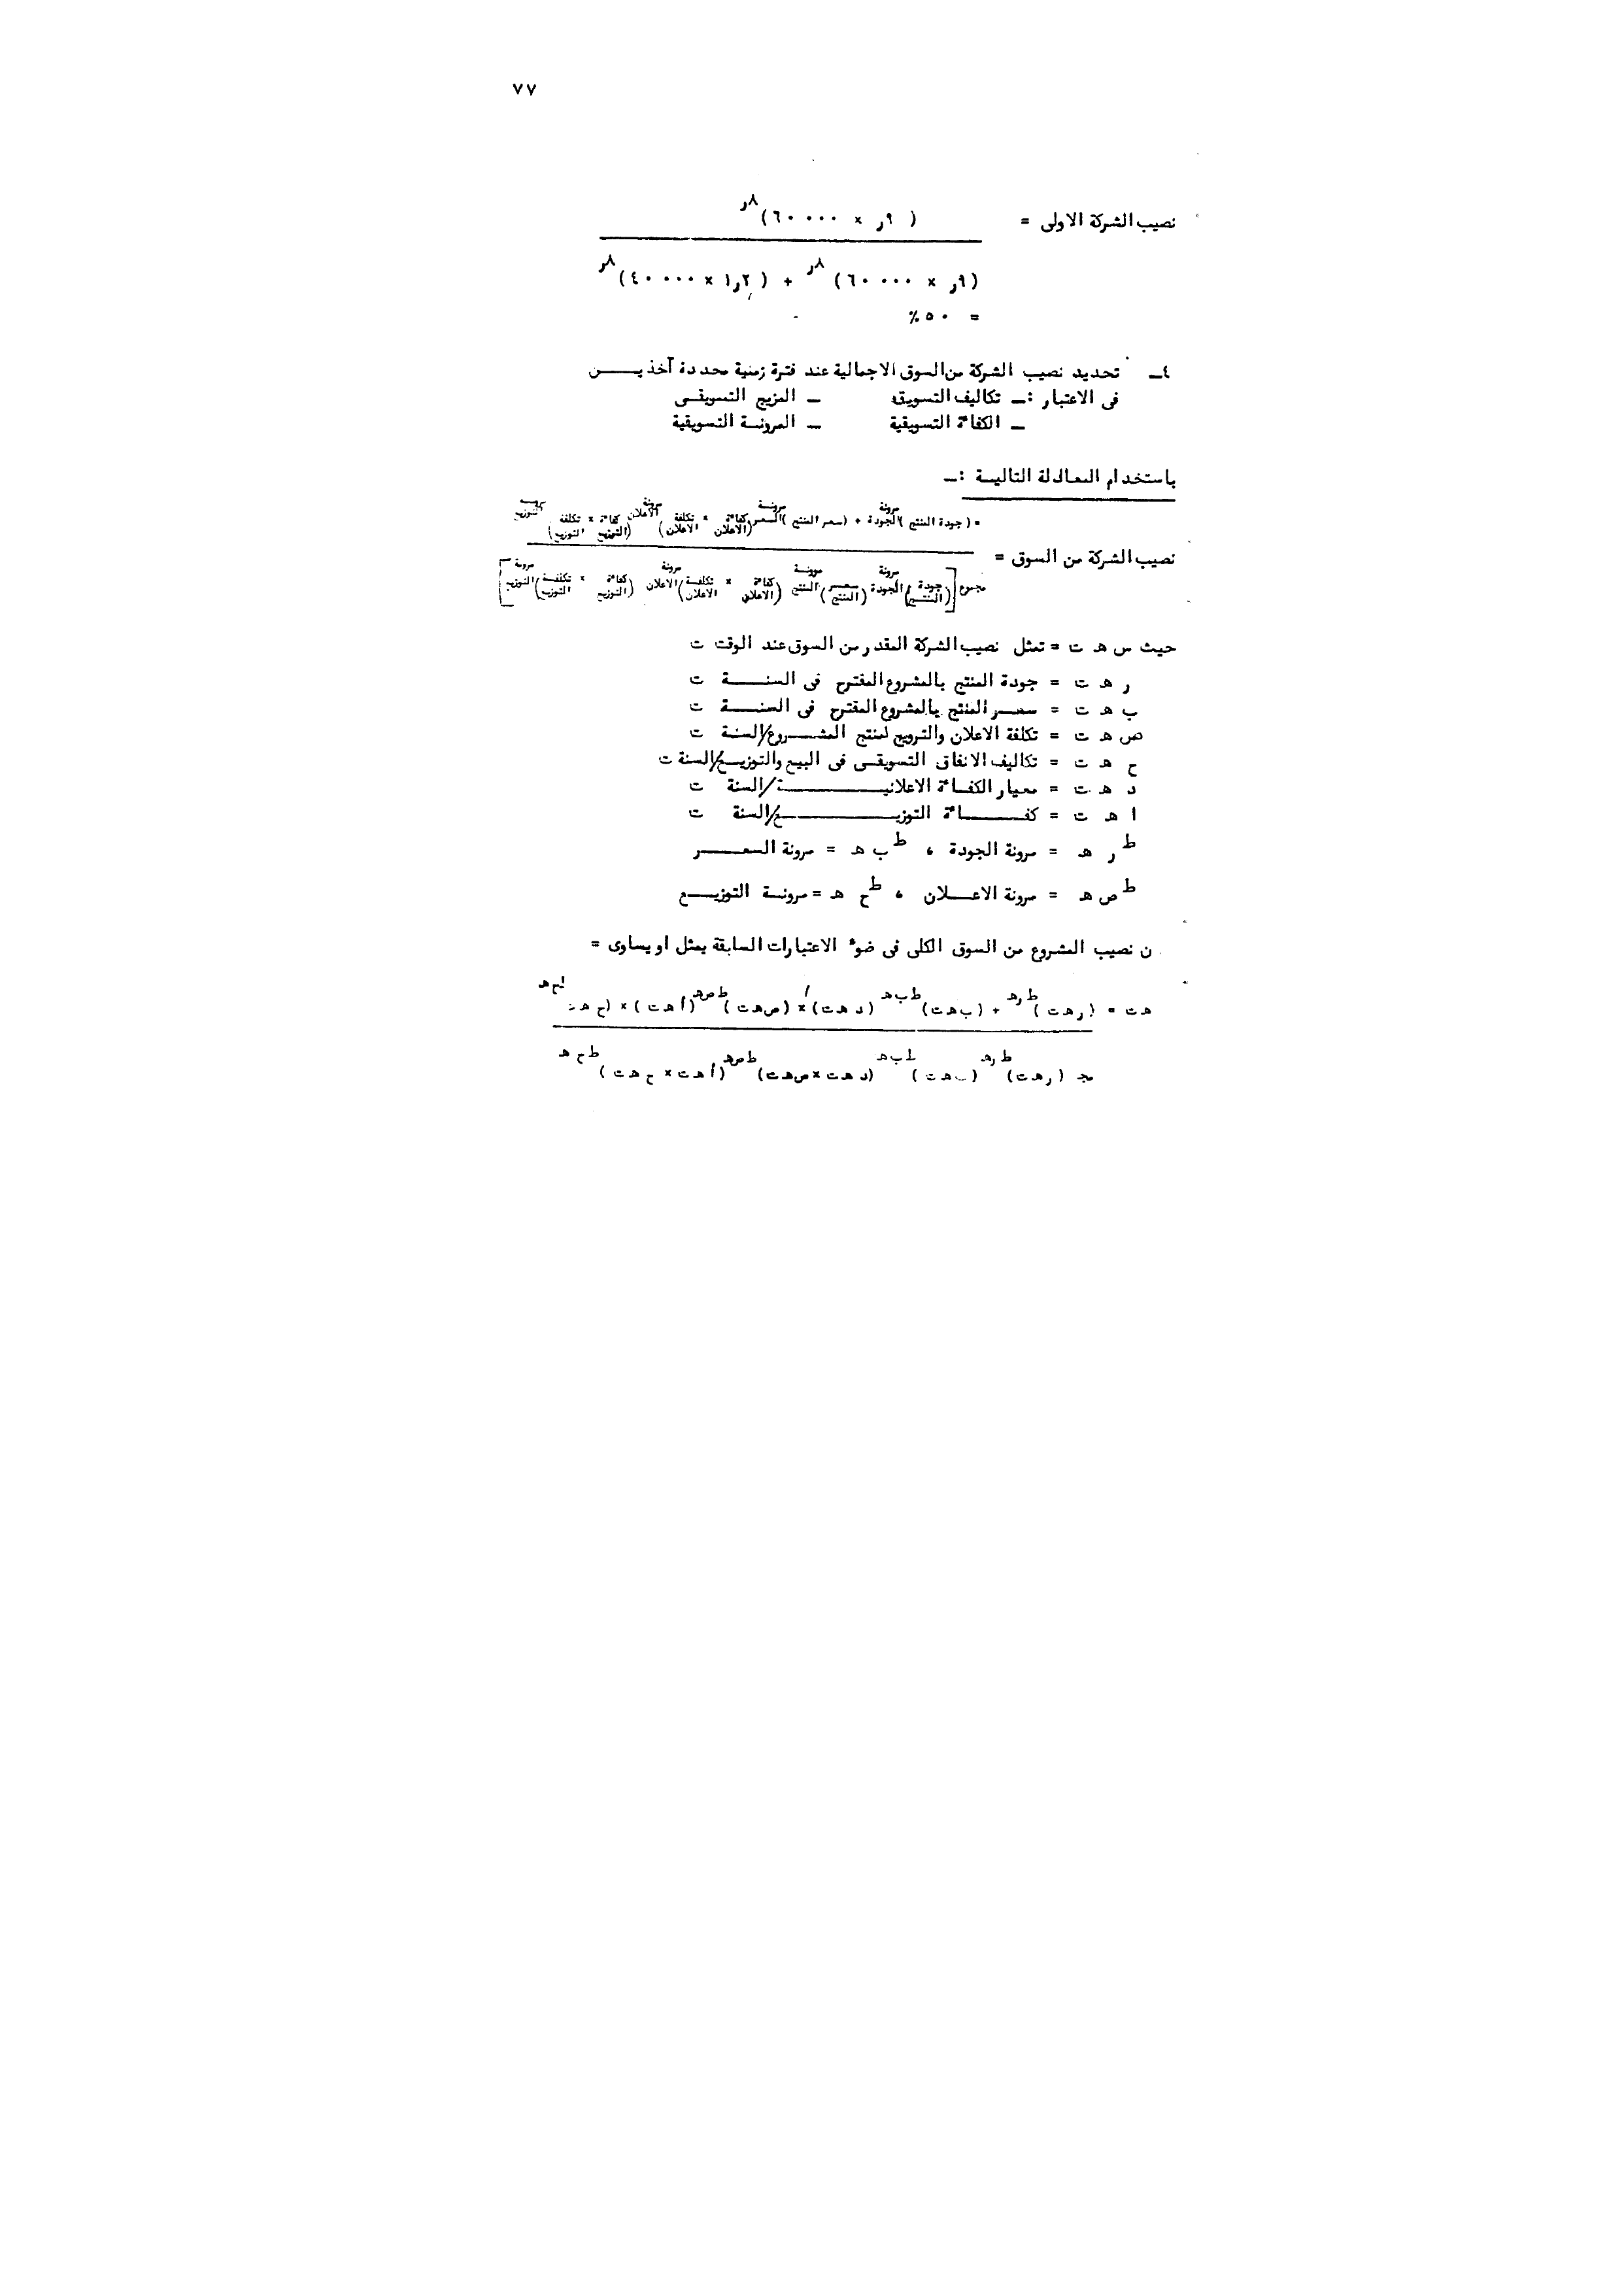 ٧٧
نصيب الشركة الاولى = ( ٩ر × ٦٠٠٠٠)^٨ر
(٩ر × ٦٠٠٠٠)^٨ر + ( ١٫٢ × ٤٠٠٠٠)^٨ر
= ٥٠٪
٤ـ تحديد نصيب الشركة من السوق الاجمالية عند فترة زمنية محددة آخذين
فى الاعتبار :ـ تكاليف التسويق ـ المزيج التسويقى
ـ الكفاءة التسويقية ـ المرونة التسويقية
باستخدام المعادلة التالية :ـ
= ( جودة المنتج )^مرونة الجودة + (سعر المنتج )^مرونة السعر (كفاءة الاعلان × تكلفة الاعلان)^مرونة الاعلان (كفاءة التوزيع × تكلفة التوزيع)^مرونة التوزيع
نصيب الشركة من السوق =
مجموع [(جودة المنتج)^مرونة الجودة (سعر المنتج)^مرونة المنتج (كفاءة الاعلان × تكلفة الاعلان)^مرونة الاعلان (كفاءة التوزيع × تكلفة التوزيع)^مرونة التوزيع]
حيث س هـ ت = تمثل نصيب الشركة المقدر من السوق عند الوقت ت
ر هـ ت = جودة المنتج بالمشروع المقترح فى السنة ت
ب هـ ت = سعر المنتج بالمشروع المقترح فى السنة ت
ص هـ ت = تكلفة الاعلان والترويج لمنتج المشروع/السنة ت
ح هـ ت = تكاليف الانفاق التسويقى فى البيع والتوزيع/السنة ت
د هـ ت = معيار الكفاءة الاعلانية/السنة ت
ا هـ ت = كفاءة التوزيع/السنة ت
ط ر هـ = مرونة الجودة ، ط ب هـ = مرونة السعر
ط ص هـ = مرونة الاعلان ، ط ح هـ = مرونة التوزيع
ن نصيب المشروع من السوق الكلى فى ضوء الاعتبارات السابقة يمثل او يساوى =
هـ ت = (ر هـ ت)^ط ر هـ + (ب هـ ت)^ط ب هـ (د هـ ت) × (ص هـ ت)^ط ص هـ (أ هـ ت) × (ح هـ ت
مجـ (ر هـ ت)^ط ر هـ (ب هـ ت)^ط ب هـ (د هـ ت × ص هـ ت)^ط ص هـ (أ هـ ت × ح هـ ت)^ط ح هـ